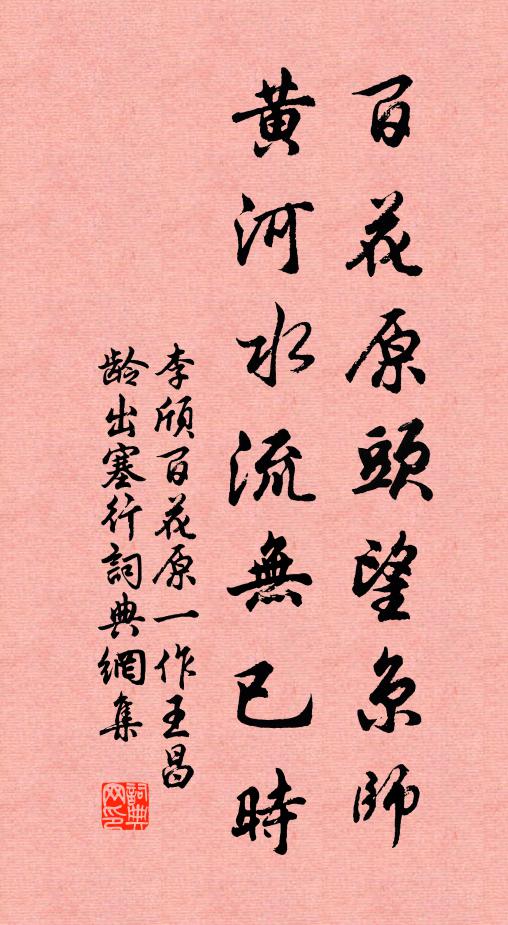 百花原頭望京師
黃河水流無已時
李頎百花原一作王昌
齡出塞行詞典網集
詞典
网印